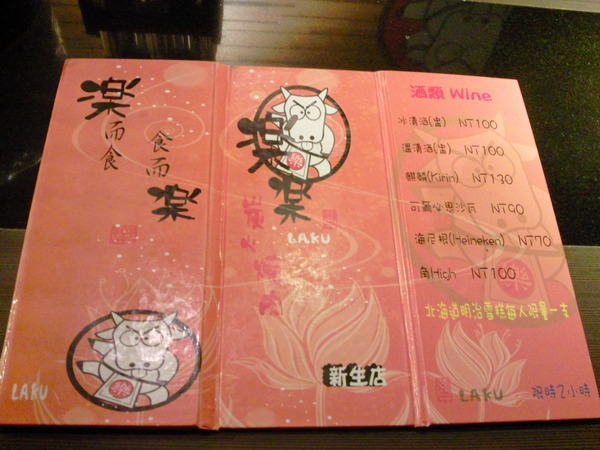 楽而食
食而楽
樂
LAKU
楽楽
樂
LAKU
炭火燒肉
新生店
酒類 Wine
冰清酒(壺) NT100
溫清酒(壺) NT160
麒麟(Kirin) NT130
可爾必思沙瓦 NT90
海尼根(Heineken) NT70
角High NT100
北海道明治雪糕每人限量一支
LAKU
限時2小時